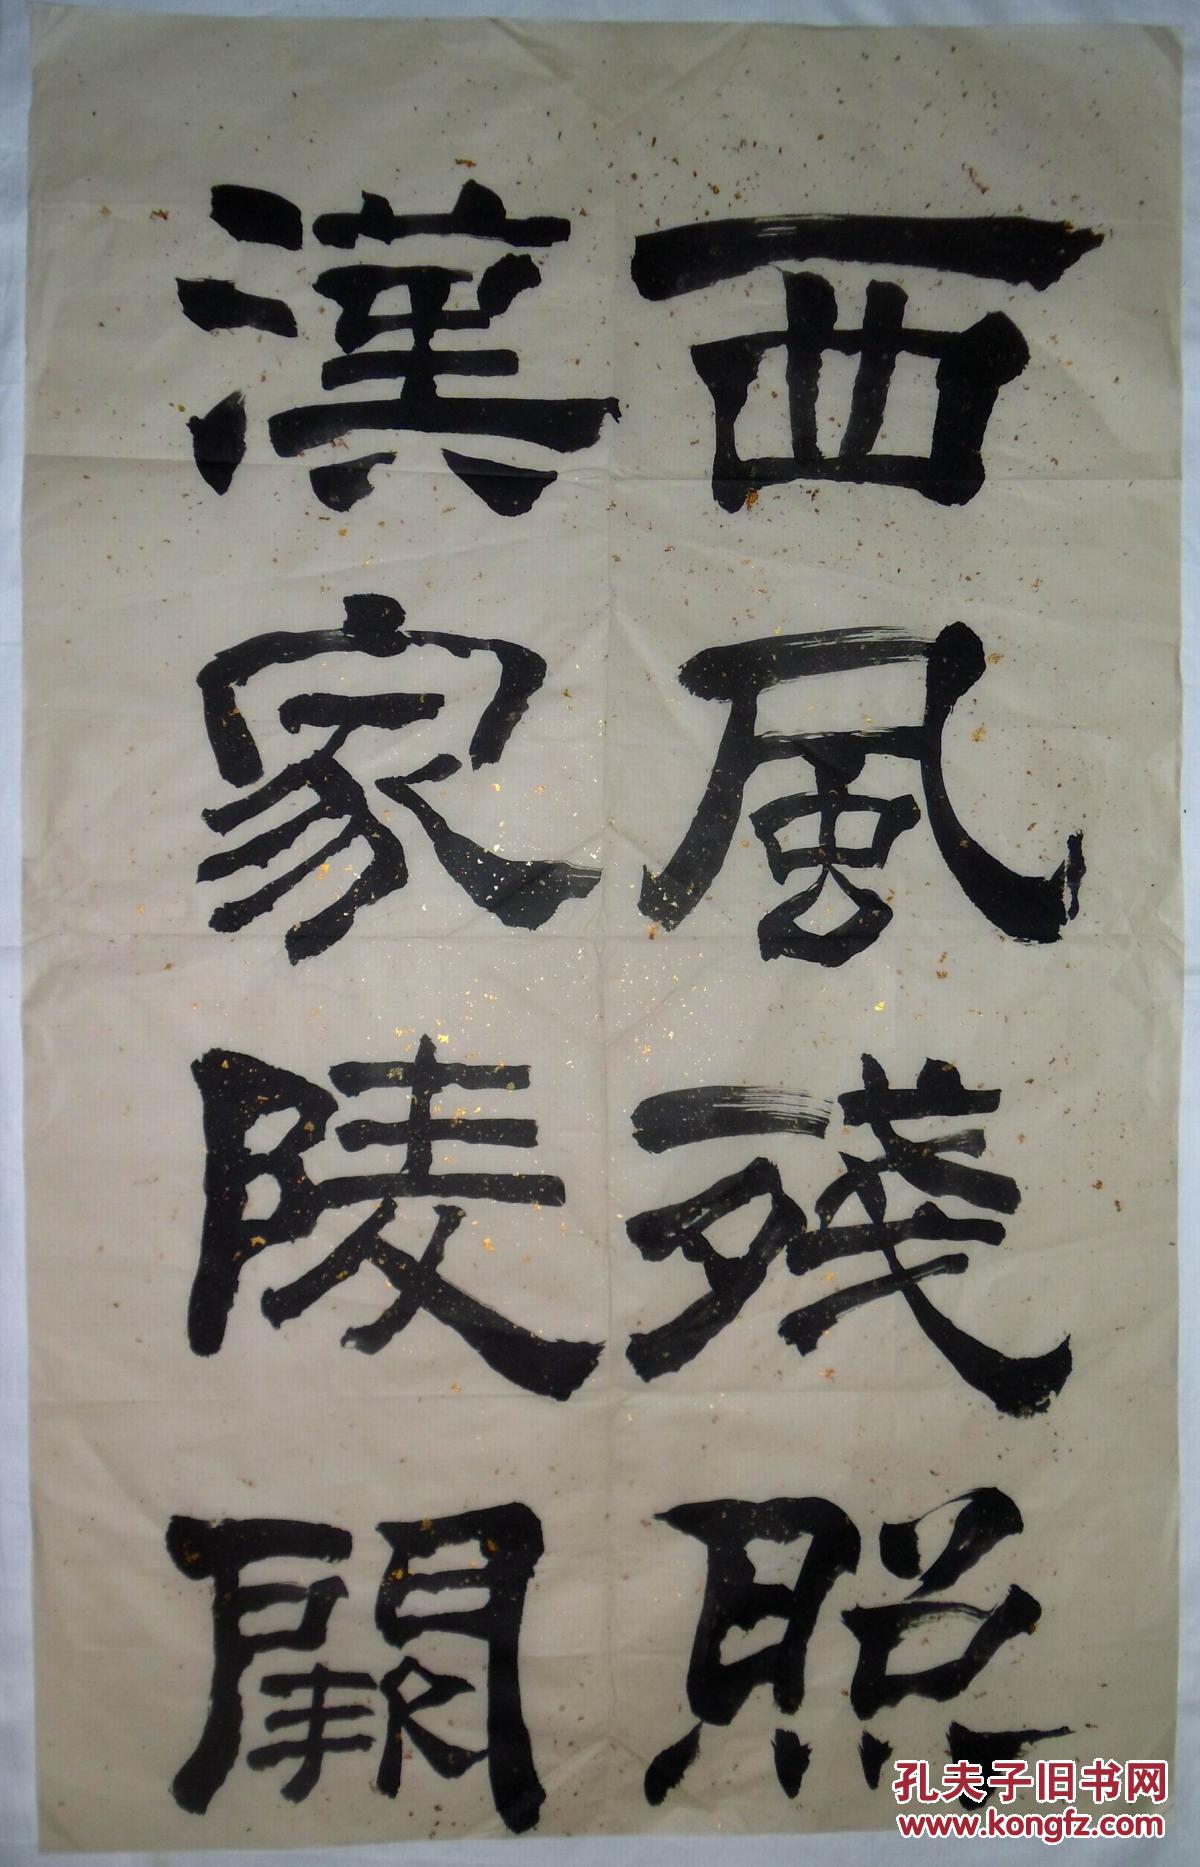 西風殘照
漢家陵闕
孔夫子旧书网
www.kongfz.com